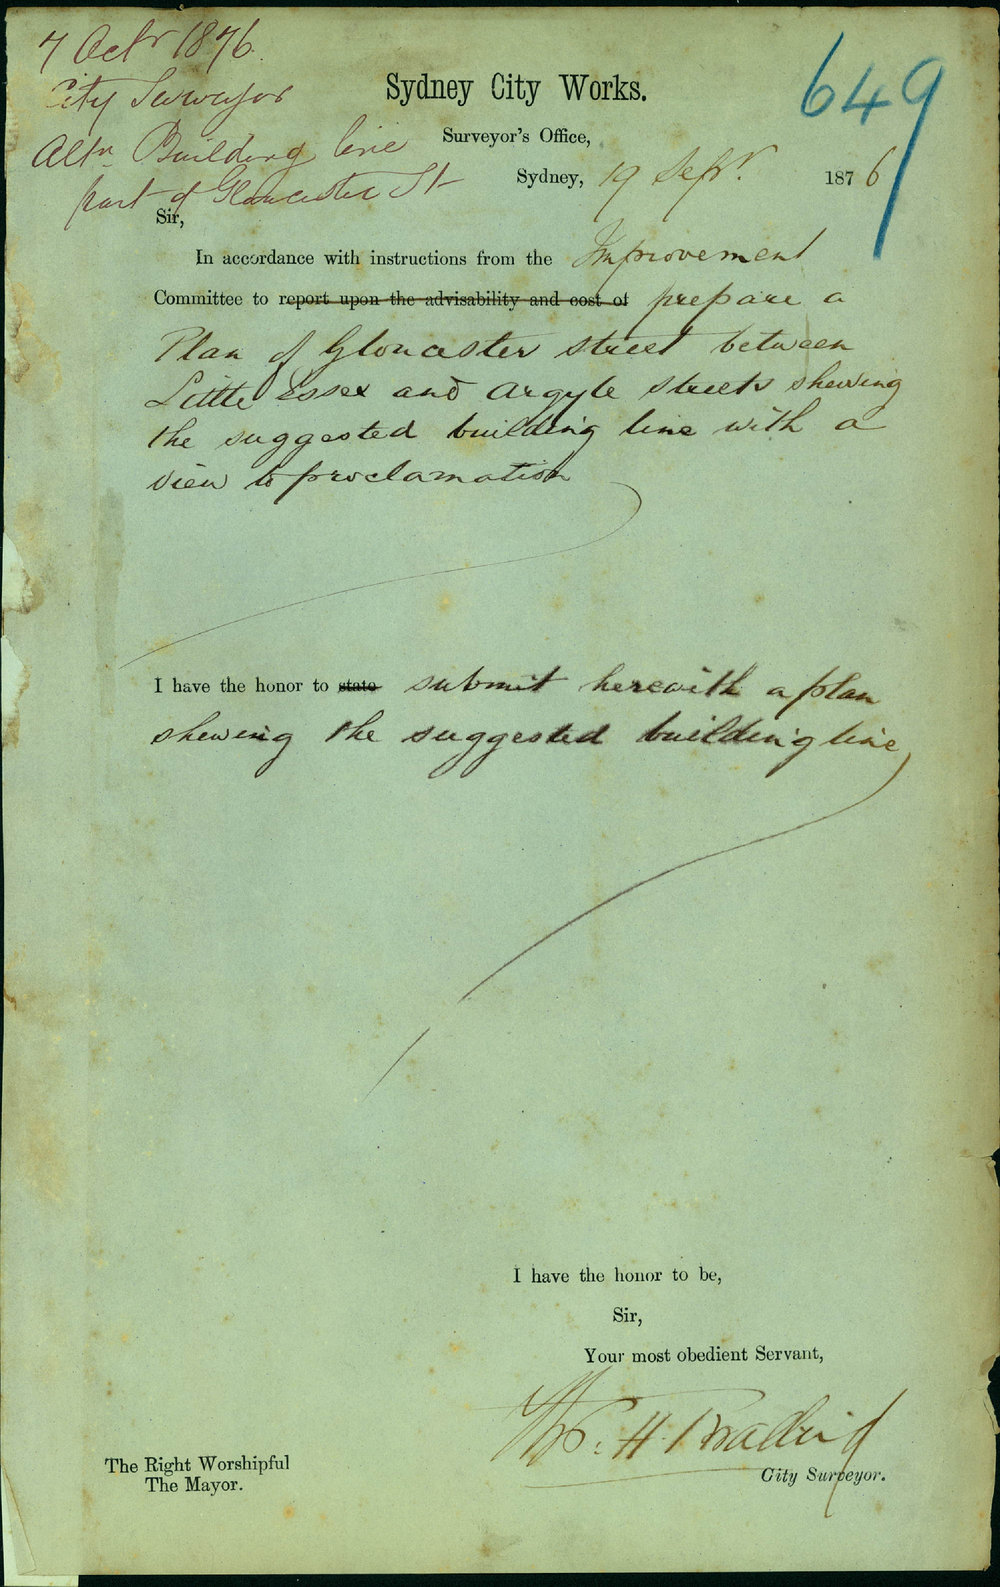 7 Octr 1876.
City Surveyor
Altn Building line
part of Gloucester St
649
Sydney City Works.
Surveyor's Office,
Sydney, 19 Sepr. 1876
Sir,
In accordance with instructions from the Improvement
Committee to report upon the advisability and cost of prepare a
Plan of Gloucester street between
Little Essex and Argyle streets shewing
the suggested building line with a
view to proclamation
I have the honor to state submit herewith a plan
shewing the suggested building line
I have the honor to be,
Sir,
Your most obedient Servant,
H. Bradridge
City Surveyor.
The Right Worshipful
The Mayor.